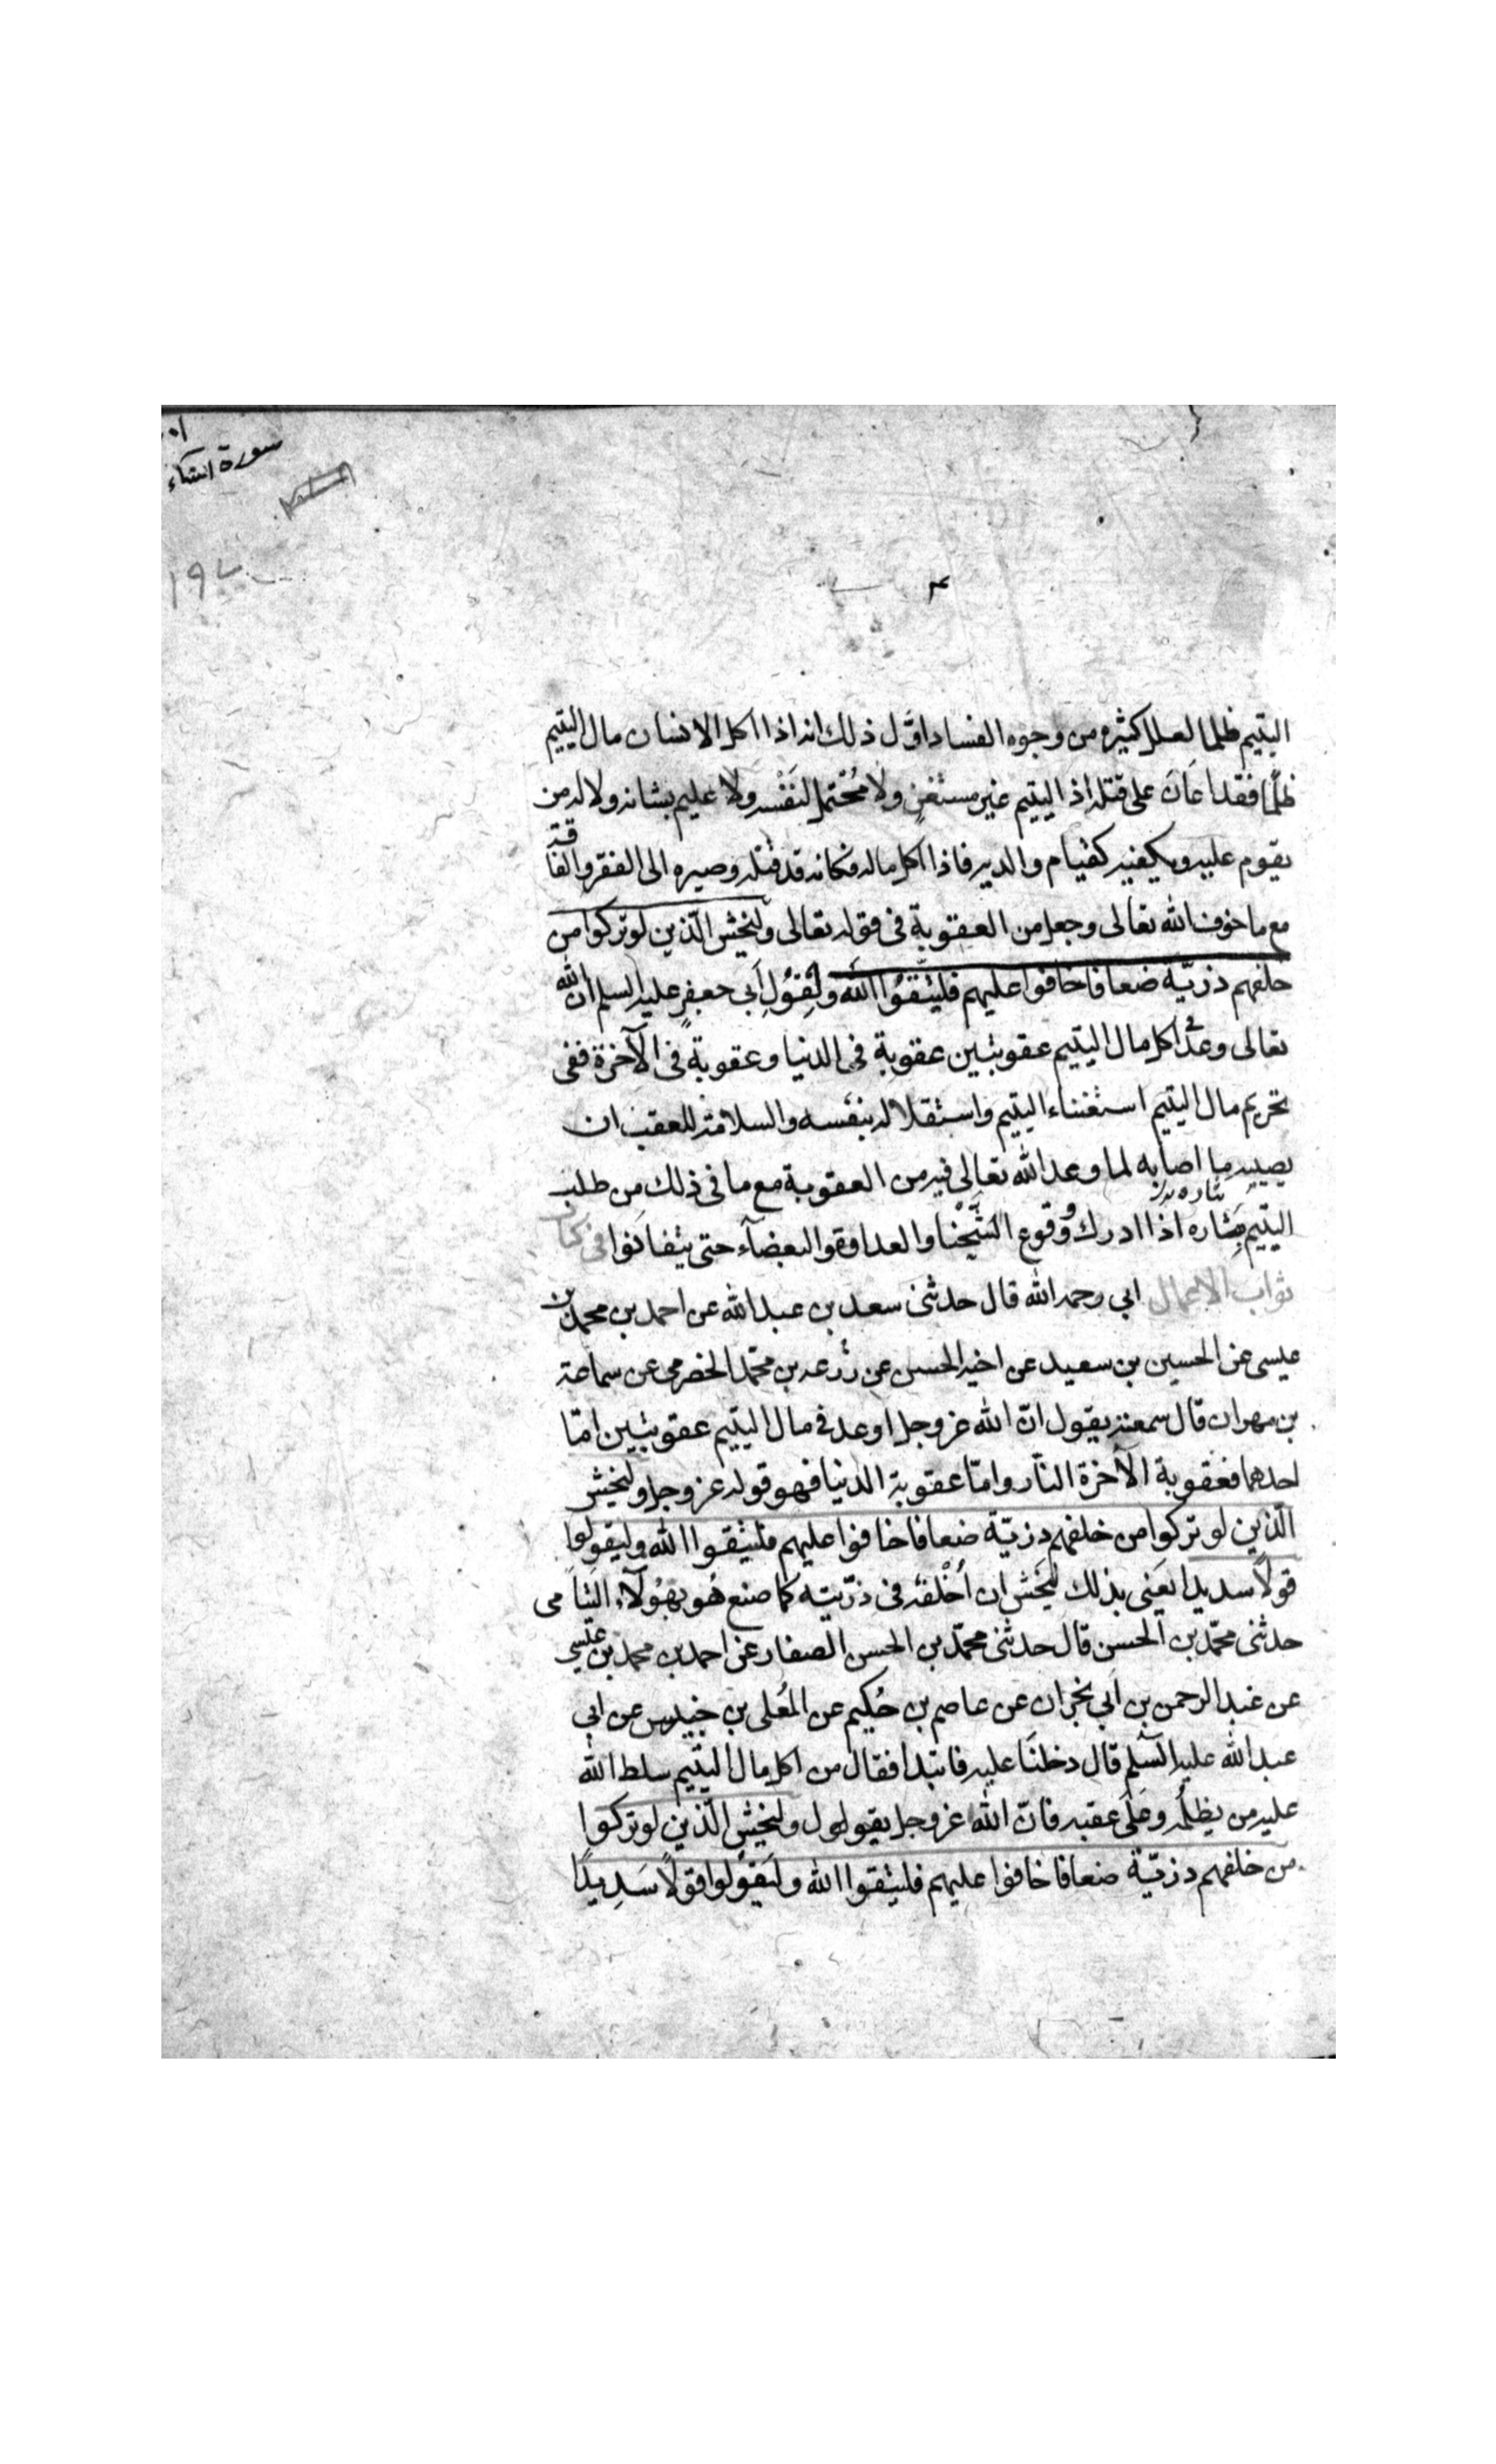 سورة النساء
اليتيم ظلما لعلل كثيرة من وجوه الفساد اوّل ذلك انه اذا اكل الانسان مال اليتيم
ظلمًا فقد اعَانَ على قتله اذ اليتيم غير مستغنٍ ولا مُحْتمل لنَفْسه ولا عليم بشانه ولا له من
يقوم عليه ويكفيه كقيام والديه فاذا اكل ماله فكانه قد قتله وصيره الى الفقر والفاقة
مع ما خوف الله تعالى وجعل من العقوبة فى قوله تعالى وليخش الّذين لو تركوا من
خلفهم ذريّة ضعافا خافوا عليهم فليتّقوُا الله ولِقوُلِ أبى جعفرٍ عليه السلم انّ الله
تعالى وعد فى اكل مال اليتيم عقوبتين عقوبة فى الدنيا وعقوبةً فى الآخرة ففى
تحريم مال اليتيم استغناء اليتيم واستقلاله بنفسه والسلامة للعقب ان
يصيبه ما اصابه لما وعد الله تعالى فيه من العقوبة مع ما فى ذلك من طلب
بثاره
اليتيم بثاره اذا ادرك ووقوع الشَّحْنا والعداوة والبغضآء حتى يتفانَوا فى كتاب
ثواب الاعمال ابى رحمه الله قال حدثنى سعد بن عبد الله عن احمد بن محمد بن
عيسى عن الحسين بن سعيد عن اخيه الحسن عن زُرعه بن محمّد الحضرمى عن سماعة
بن مهران قال سمعته يقول انّ الله عز وجل اوعد فى مال اليتيم عقوبتين امّا
احدهما فعقوبة الآخرة النّار وامّا عقوبة الدنيا فهو قوله عز وجل وليخش
الّذين لو تركوا من خلفهم ذريّة ضعافا خافوا عليهم فليتقوا الله وليقولوا
قولًا سديدا يعَنى بذلك ليَخش ان أخْلفَهُ فى ذرّيته كما صنع هُو بهؤلآء اليَتامى
حدثنى محمّد بن الحسن قال حدثنى محمّد بن الحسن الصفار عن احمد بن محمد بن عيسى
عن عبد الرحمن بن ابى نجران عن عاصم بن حُكيم عن المُعلى بن خنيس عن ابى
عبد الله عليه السّلم قال دخلنَا عليه فابتدا فقال من اكل مال اليتيم سلط الله
عليه من يظلمُه وعَلى عقبه فانّ الله عز وجل يقول وليخش الّذين لو تركوا
من خلفهم ذريّة ضعافا خافوا عليهم فليتقوا الله وليَقوُلوا قولًا سَدِيدًا